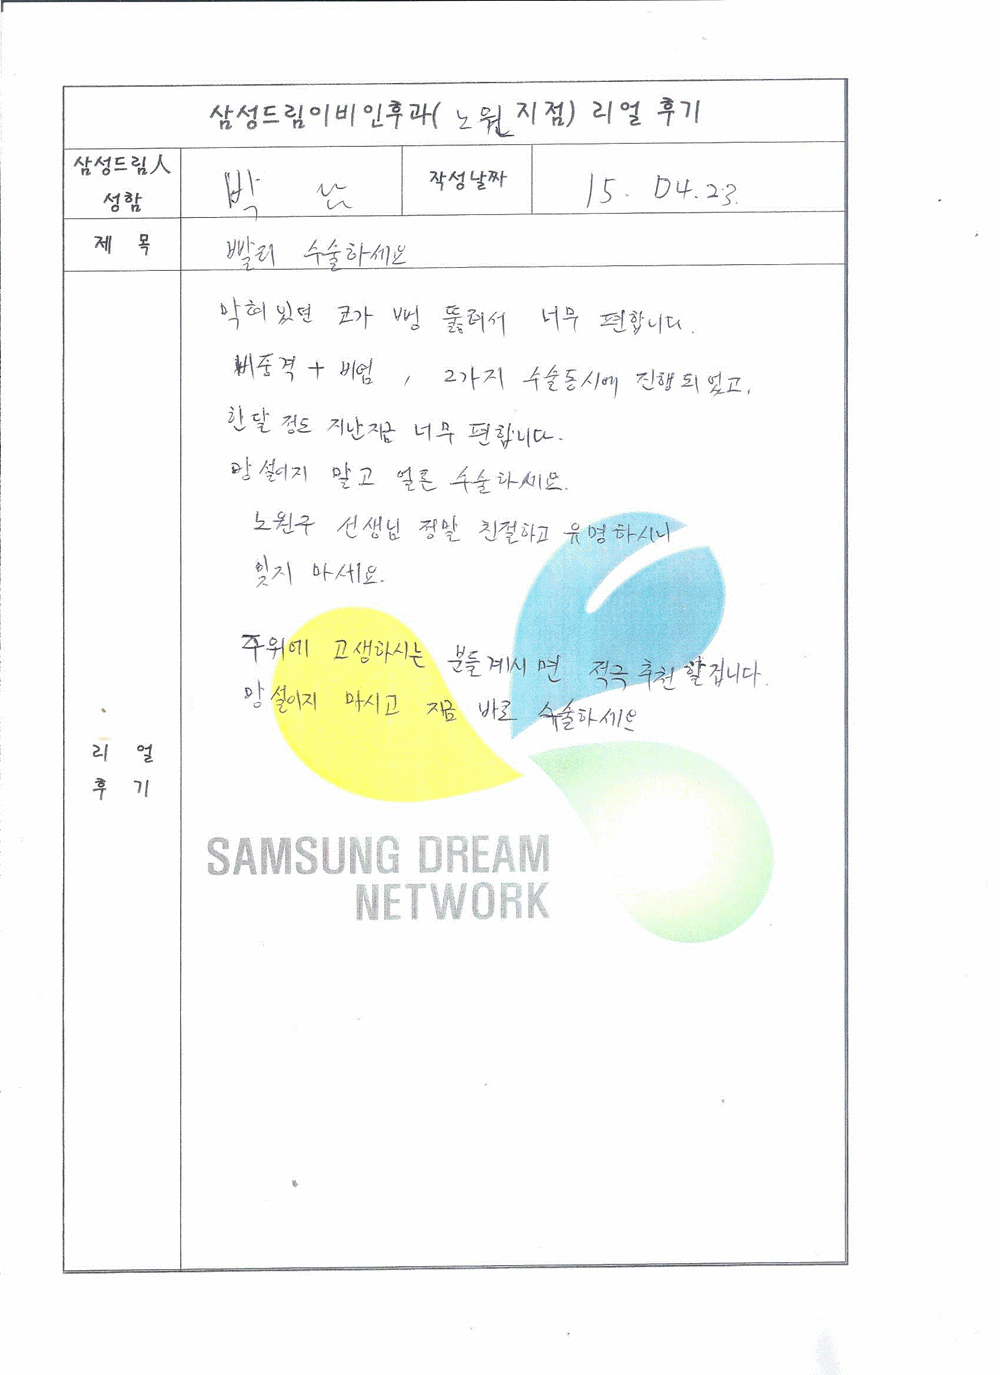 삼성드림이비인후과( 노원 지점) 리얼 후기
삼성드림人 성함
박
작성날짜
15. 04.23.
제 목
빨리 수술하세요
막혀있던 코가 뻥 뚫려서 너무 편합니다.
비중격 + 비염 , 2가지 수술동시에 진행되었고,
한달 정도 지난지금 너무 편합니다.
망설이지 말고 얼른 수술하세요.
노원구 선생님 정말 친절하고 유명하시니
잊지 마세요.
주위에 고생하시는 분들계시면 적극 추천할겁니다.
망설이지 마시고 지금 바로 수술하세요
리 얼
후 기
SAMSUNG DREAM
NETWORK